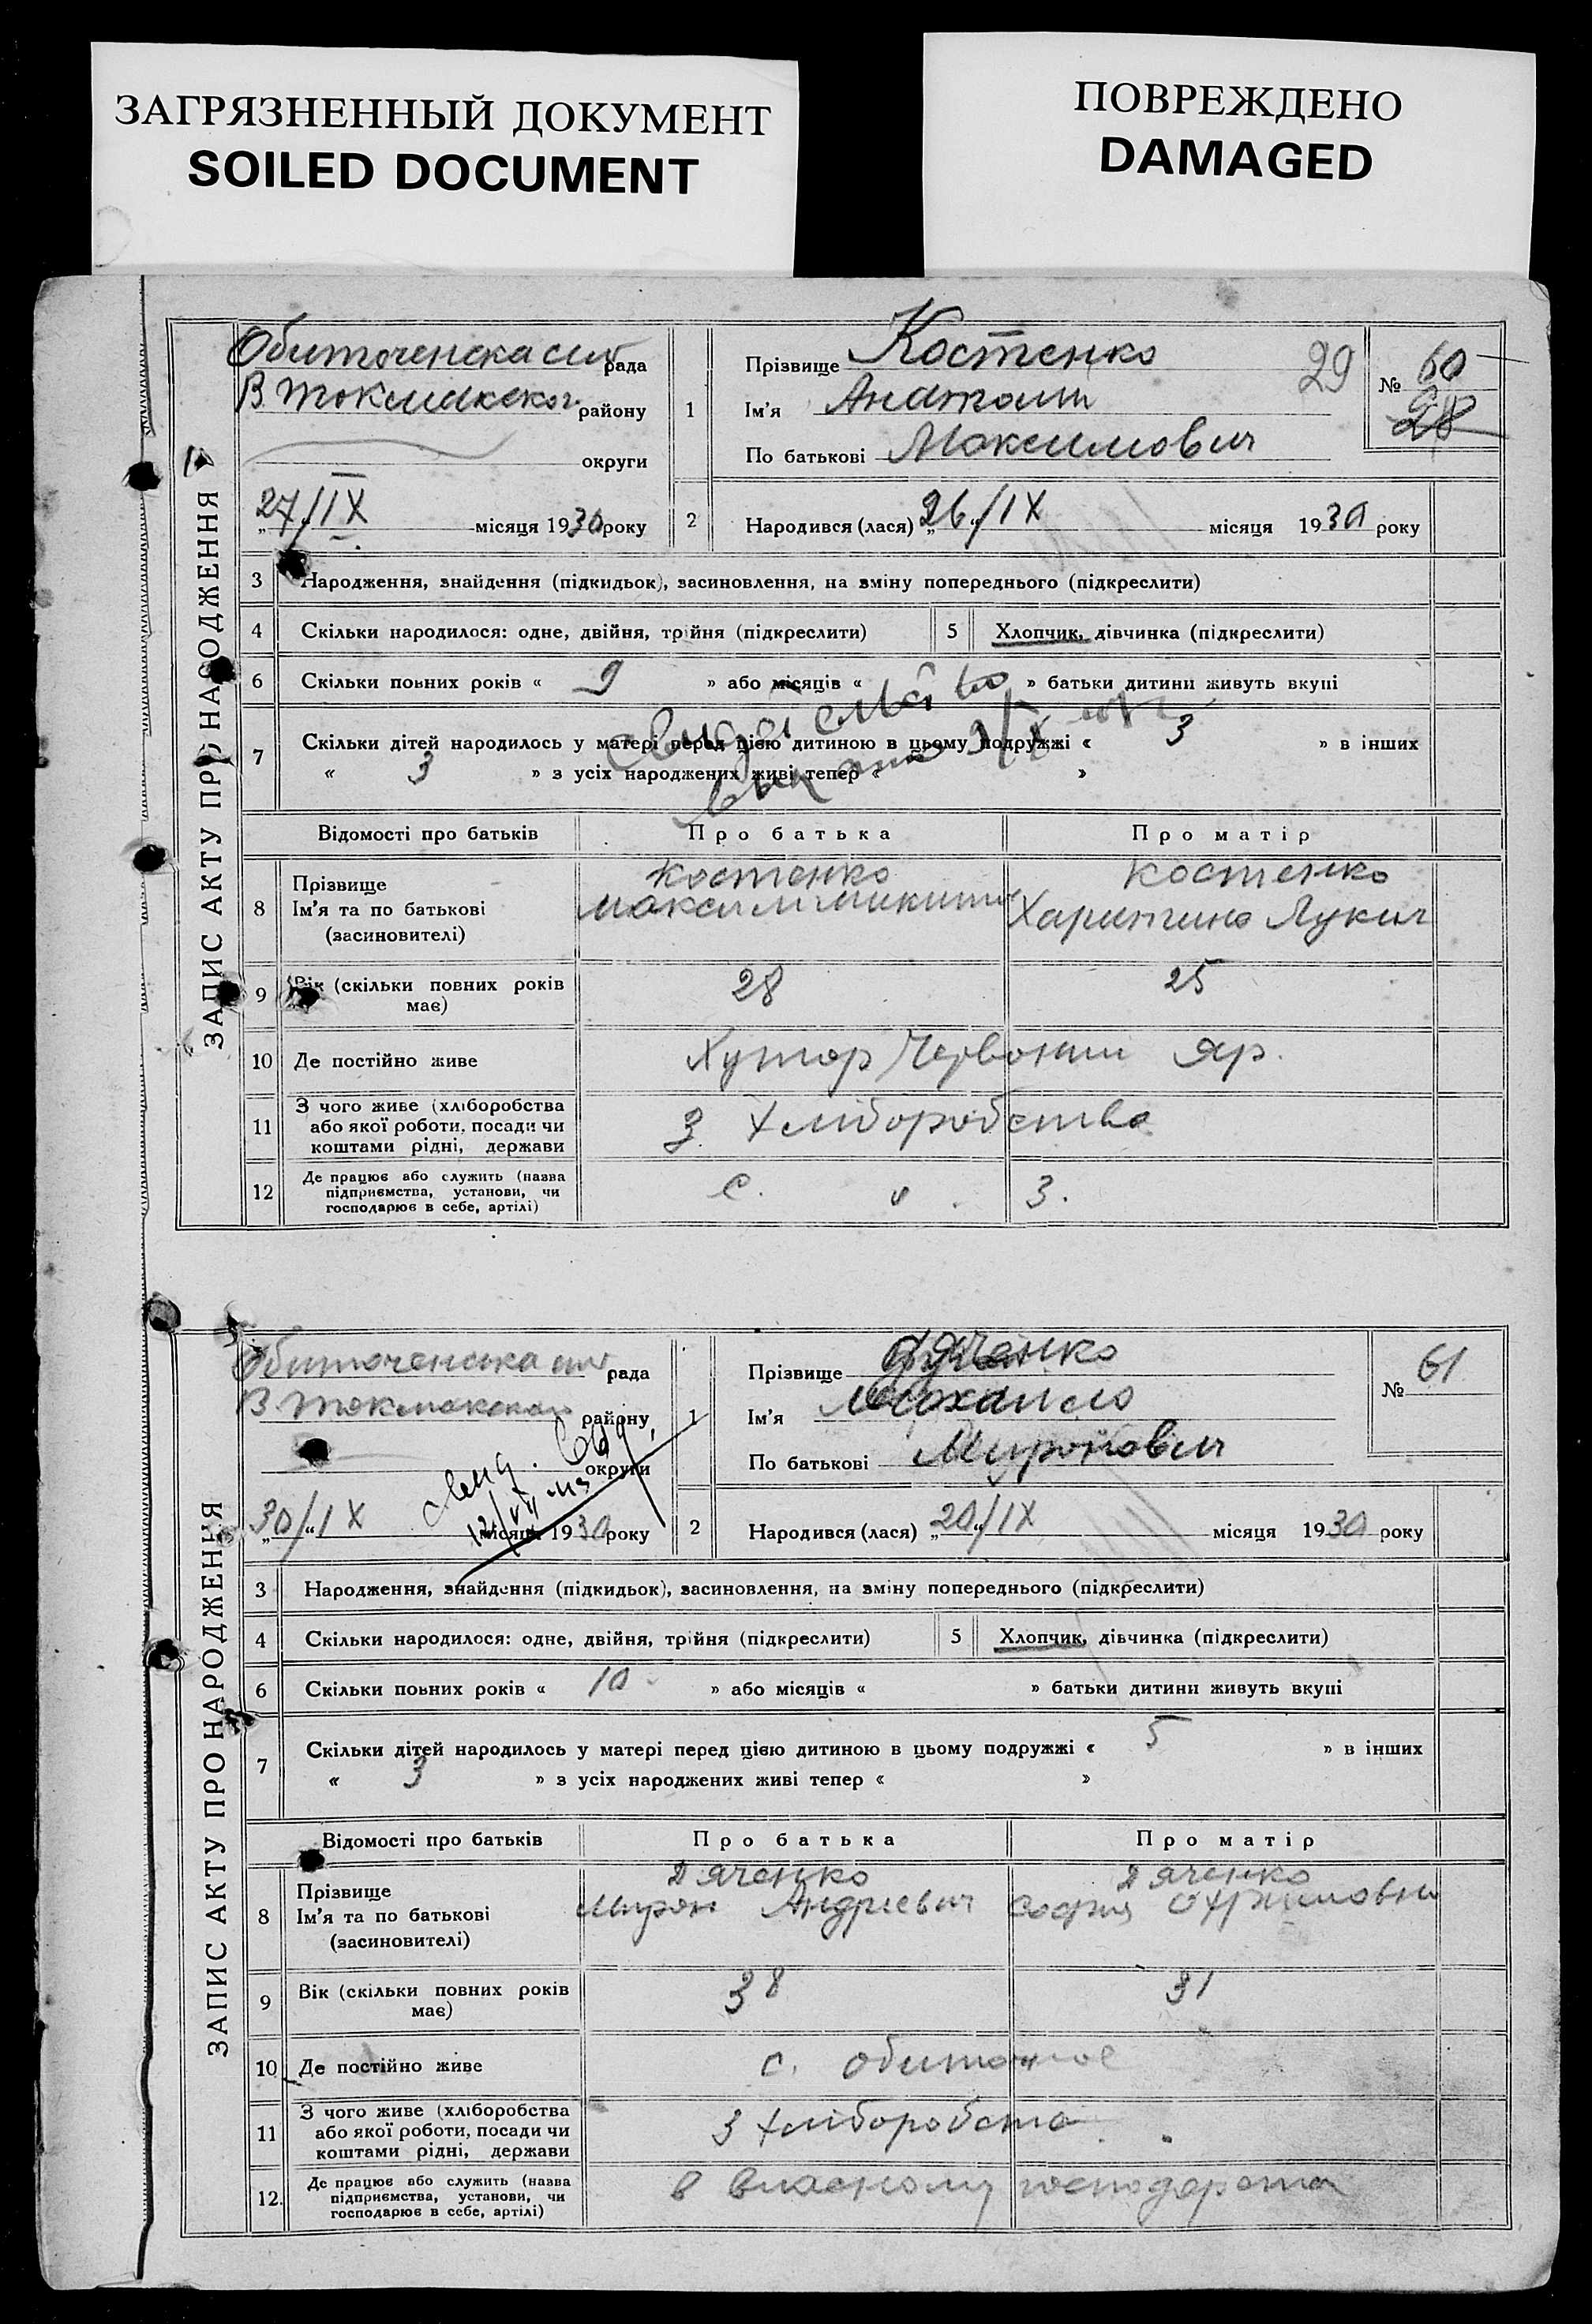 ЗАГРЯЗНЕННЫЙ ДОКУМЕНТ
SOILED DOCUMENT
ПОВРЕЖДЕНО
DAMAGED
ЗАПИС АКТУ ПРО НАРОДЖЕННЯ
Обиточенска рада
В Токмакског району
округи
„27/“ IX місяця 1930 року
1
Прізвище Костенко
Ім'я Анатоли
По батькові Максимович
29
№ 60
28
2
Народився (лася) „26“/IX місяця 1930 року
3 Народження, знайдення (підкидьок), засиновлення, на зміну попереднього (підкреслити)
4 Скільки народилося: одне, двійня, трійня (підкреслити)
5 Хлопчик, дівчинка (підкреслити)
6 Скільки повних років « 9 » або місяців « » батьки дитини живуть вкупі
7 Скільки дітей народилось у матері перед цією дитиною в цьому подружжі « 3 » в інших
« 3 » з усіх народжених живі тепер « »
Відомості про батьків
Про батька
Про матір
8 Прізвище
Ім'я та по батькові
(засиновителі)
Костенко
Максим Микит
Костенко
Харитина Лукич
9 Вік (скільки повних років
має)
28
25
10 Де постійно живе
Хутор Червоний Яр.
11 З чого живе (хліборобства
або якої роботи, посади чи
коштами рідні, держави
З хліборобства
12 Де працює або служить (назва
підприємства, установи, чи
господарює в себе, артілі)
С. 3.
ЗАПИС АКТУ ПРО НАРОДЖЕННЯ
Обиточенська рада
В. Токмакског району
округи
„30/“ IX місяця 1930 року
1
Прізвище Дяченко
Ім'я Михаило
По батькові Миронович
№ 61
2
Народився (лася) „20“/IX місяця 1930 року
3 Народження, знайдення (підкидьок), засиновлення, на зміну попереднього (підкреслити)
4 Скільки народилося: одне, двійня, трійня (підкреслити)
5 Хлопчик, дівчинка (підкреслити)
6 Скільки повних років « 10 » або місяців « » батьки дитини живуть вкупі
7 Скільки дітей народилось у матері перед цією дитиною в цьому подружжі « 5 » в інших
« 3 » з усіх народжених живі тепер « »
Відомості про батьків
Про батька
Про матір
8 Прізвище
Ім'я та по батькові
(засиновителі)
Дяченко
Мирон Андрієвич
Дяченко
Софія
9 Вік (скільки повних років
має)
38
31
10 Де постійно живе
с. Обиточное
11 З чого живе (хліборобства
або якої роботи, посади чи
коштами рідні, держави
З хліборобства
12. Де працює або служить (назва
підприємства, установи, чи
господарює в себе, артілі)
в власному господарстві